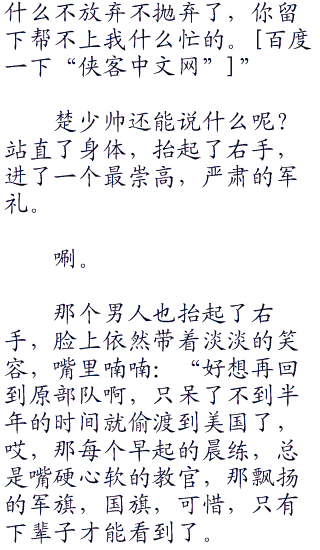 什么不放弃不抛弃了，你留
下帮不上我什么忙的。[百度
一下“侠客中文网”]”
楚少帅还能说什么呢？
站直了身体，抬起了右手，
进了一个最崇高，严肃的军
礼。
唰。
那个男人也抬起了右
手，脸上依然带着淡淡的笑
容，嘴里喃喃：“好想再回
到原部队啊，只呆了不到半
年的时间就偷渡到美国了，
哎，那每个早起的晨练，总
是嘴硬心软的教官，那飘扬
的军旗，国旗，可惜，只有
下辈子才能看到了。